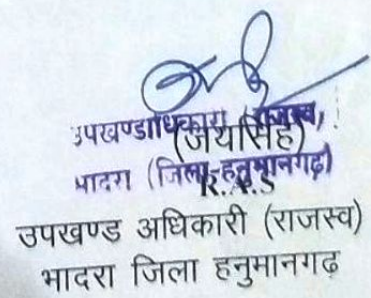 उपखण्डाधिकारी (राजस्व)
(जयसिंह)
भादरा (जिला-हनुमानगढ़)
R.A.S
उपखण्ड अधिकारी (राजस्व)
भादरा जिला हनुमानगढ़